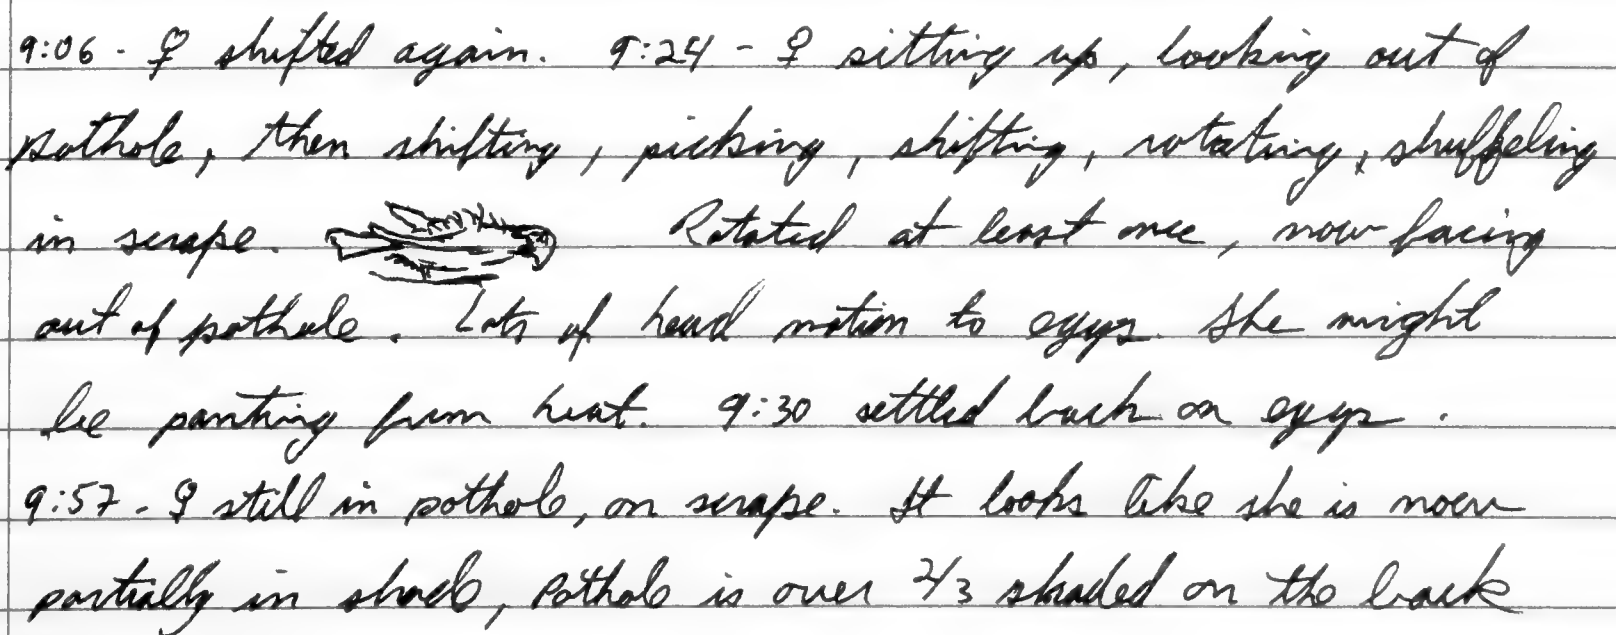 9:06 - ♀ shifted again. 9:24 - ♀ sitting up, looking out of
pothole, then shifting, picking, shifting, rotating, shuffeling
in scrape. Rotated at least once, now facing
out of pothole. Lots of head motion to eggs. She might
be panting from heat. 9:30 settled back on eggs.
9:57 - ♀ still in pothole, on scrape. It looks like she is now
partially in shade, Pothole is over 2/3 shaded on the back